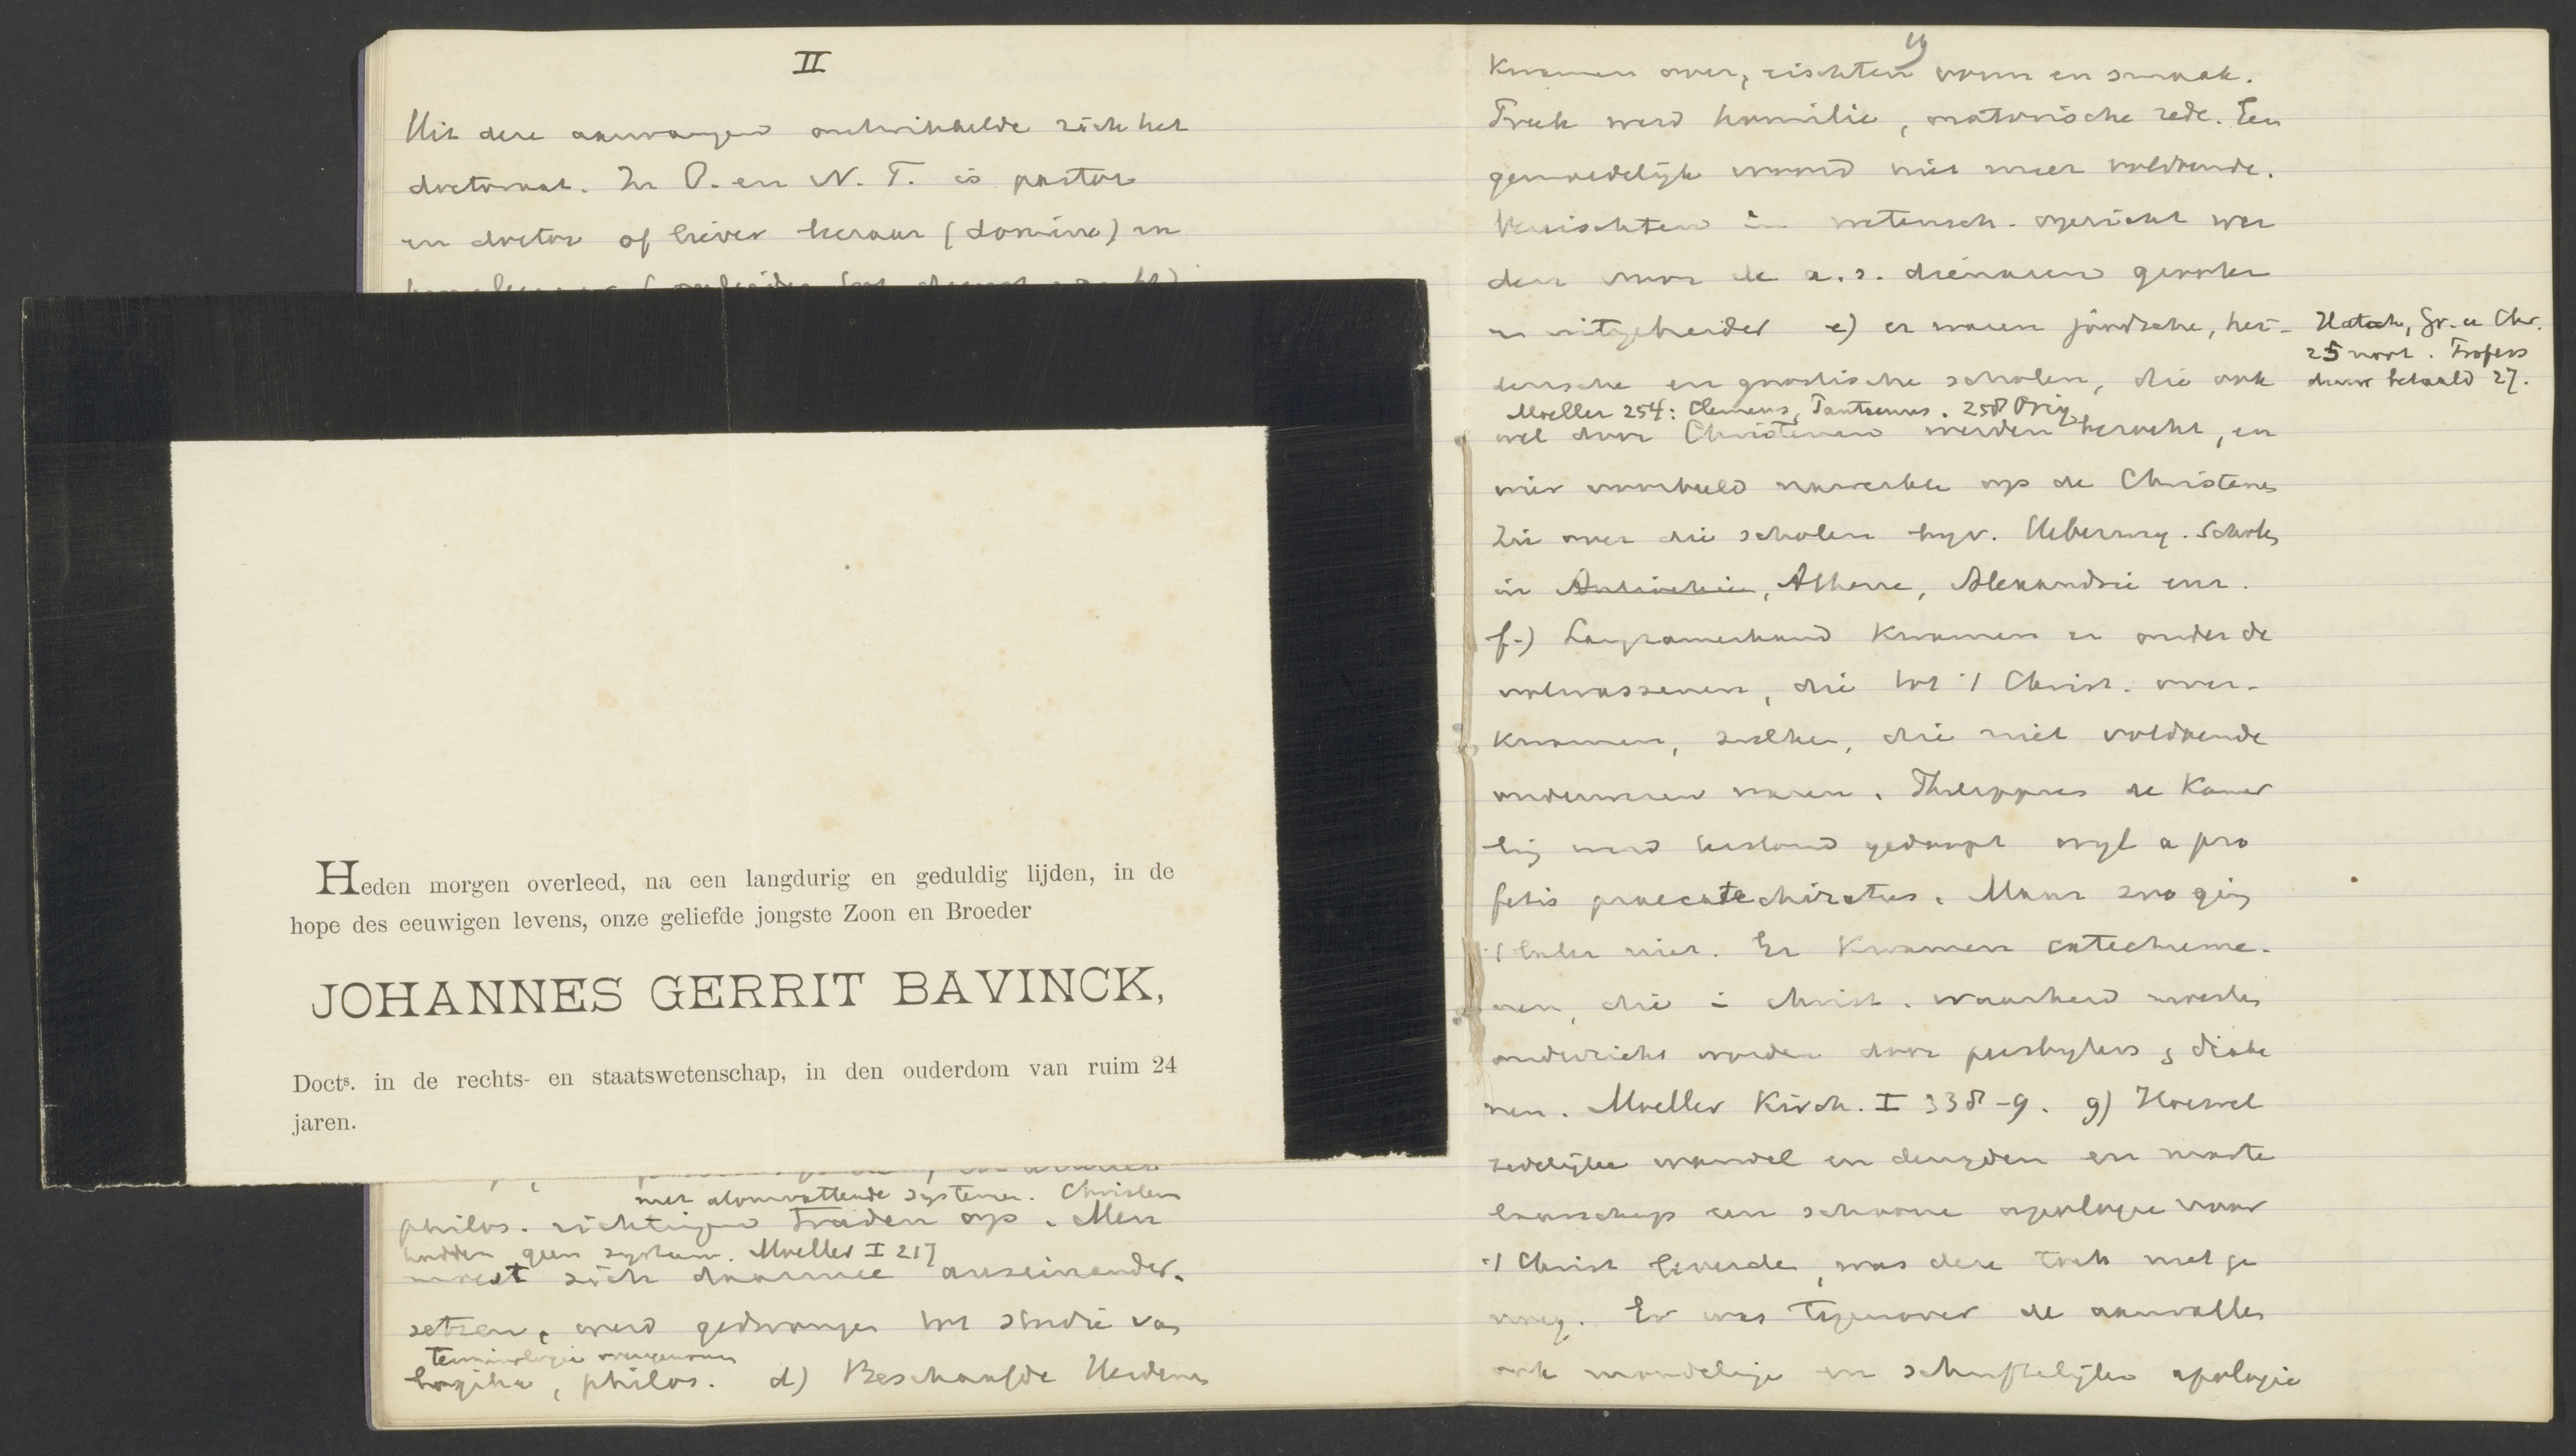 II
Uit deze aanvangen ontwikkelde zich het
doctoraat. In O. en N. T. is pastor
en doctor of liever leeraar (domine) en
Heden morgen overleed, na een langdurig en geduldig lijden, in de
hope des eeuwigen levens, onze geliefde jongste Zoon en Broeder
JOHANNES GERRIT BAVINCK,
Docts. in de rechts- en staatswetenschap, in den ouderdom van ruim 24
jaren.
met alomvattende systemen. Christen
philos. richtingen traden op. Men
hadden geen systeem. Moeller I 217
moest zich daarmee auseinander-
setzen, werd gedwongen tot studie van
terminologie overgenomen
logika, philos. d) Beschaafde Heidenen
kwamen over, eischten vorm en smaak.
Preek werd homilie, oratorische rede. Een
gemoedelijk woord niet meer voldoende.
Vereischten in wetensch. opzicht wer
den voor de a.s. dienaren grooter
en uitgebreider e) er waren joodsche, hei-
Hatch, Gr. u Chr.
25 noot. Profess
duur betaald 27.
densche en gnostische scholen, die ook
Moeller 254: Clemens, Pantaenus. 258 Orig.
wel door Christenen werden bezocht, en
wier voorbeeld nawerkte op de Christenen
Zie over die scholen bijv. Ueberweg. Scholen
in Antiochie, Athene, Alexandrie enz.
f.) Langzamerhand kwamen er onder de
volwassenen, die tot 't Christ. over-
kwamen, zulken, die niet voldoende
onderwezen waren. Philippus de Kamer
ling werd terstond gedoopt wijl a pro
fetis praecatechizatus. Maar zoo ging
't later niet. Er kwamen catechume-
nen, die i christ. waarheid moesten
onderricht worden door presbyters & diake
nen. Moeller Kirch. I 338-9. g) Hoewel
zedelijke wandel en deugden en marte
laarschap een schoone apologie voor
't Christ leverde, was deze toch niet ge
noeg. Er was tegenover de aanvallen
ook mondelinge en schriftelijke apologie